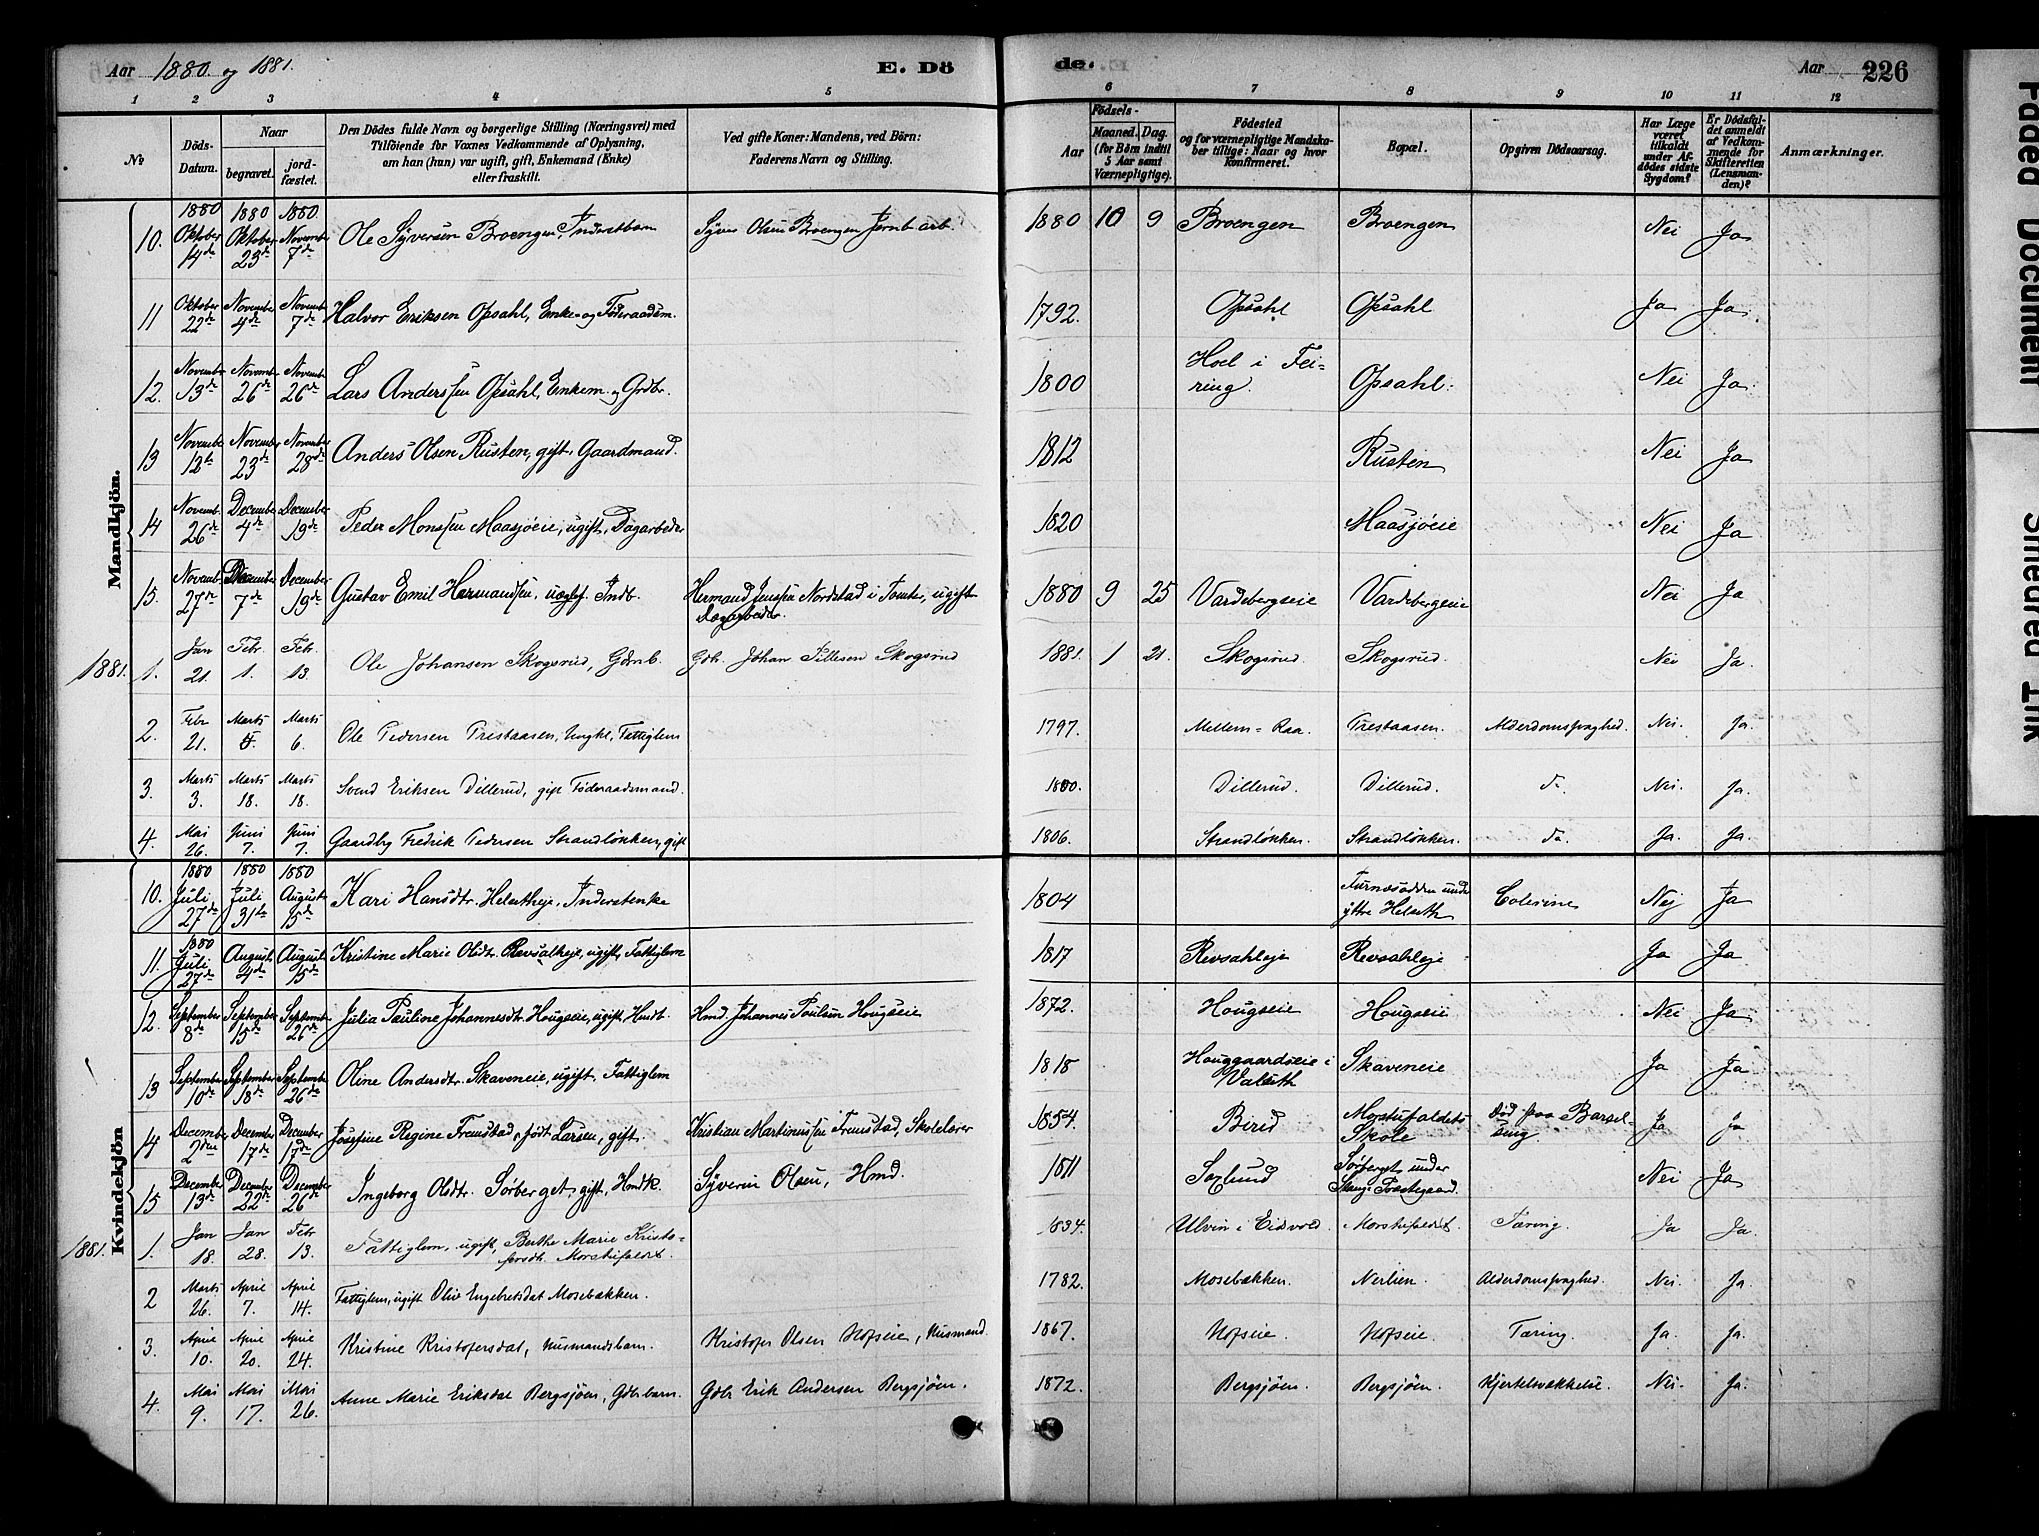 Aar 1880 og 1881. E. Dö de. Aar 226
1 2 3 4 5 6 7 8 9 10 11 12
№
Döds-Datum.
Naar
begravet.
jordfæstet.
Den Dödes fulde Navn og borgerlige Stilling (Næringsvei) med
Tilföiende for Voxnes Vedkommende af Oplysning,
om han (hun) var ugift, gift, Enkemand (Enke)
eller fraskilt.
Ved gifte Koner: Mandens, ved Börn:
Faderens Navn og Stilling.
Födsels-
Aar
Maaned. Dag.
(for Börn indtil
5 Aar samt
Værnepligtige).
Födested
og for værnepligtige Mandska-
ber tillige: Naar og hvor
konfirmeret.
Bopæl.
Opgiven Dödsaarsag.
Har Læge
været
tilkaldt
under Af-
dödes sidste
Sygdom?
Er Dödsfal-
det anmeldt
af Vedkom-
mende for
Skifteretten
(Lensman-
den)?
Anmærkninger.
Mandkjön.
10. 1880 Oktober 14de 1880 Oktober 23de 1880. November 7de Ole Syversen Broengen, Inderstbarn Syver Olsen Broengen Jernb. arb. 1880 10 9 Broengen Broengen Nei Ja
11 Oktober 22de November 4de November 7de Halvor Eriksen Opsahl, Enke- og Föderaadsm. 1792. Opsahl Opsahl Ja Ja
12. November 13de Novemb. 26de Novemb. 26de Lars Anderssen Opsahl, Enkem. og Grdbr. 1800 Hoel i Fei-
ring. Opsahl. Nei Ja
13 November 12te November 23de November 28de Anders Olsen Rusten, gift, Gaardmand. 1812 Rusten Nei Ja
14 Novemb. 26de December 4de December 19de Peder Monssen Maasjöeie, ugift, Dagarbeder 1820 Maasjöeie Nei Ja
15. Novemb. 27de December 7de December 19de Gustav Emil Hermandsen, Indb. Hermand Jenssen Nordstad i Tomter, ugift
Dagarbeder. 1880 9 25 Vardebergseie Vardebergseie Nei Ja
1881. 1. Jan 21. Febr. 1. Febr. 13. Ole Johansen Skogsrud, Gdmb. Gdbr. Johan Pillesen Skogsrud 1881. 1 21. Skogsrud. Skogsrud. Nei Ja.
2. Febr 21. Marts 5. Marts 6. Ole Pedersen Prestaasen, Ungkl, Fattiglem 1797. Mellem-Raa. Prestaasen. Alderdomssvaghed. Nei. Ja.
3. Marts 3. Marts 18. Marts 18. Svend Eriksen Dillerud, gift Föderaadsmand. 1800. Dillerud. Dillerud. do. Nei. Ja.
4. Mai 26. Juni 7. Juni 7. Gaardbr Fredrik Pedersen Strandlökken, gift 1806. Strandlökken. Strandlökken. do. Ja. Ja.
Kvindekjön
10. 1880 Juli 27de 1880 Juli 31te 1880 August 15de Kari Hansdtr. Helsetheje, Inderstenke 1804 Furnesodden under
yttre Helseth Colerine Nej Ja
11. 1880 Juli 27de August 4de August 15de Kristine Marie Olsdtr. Revsahleje, ugift, Fattiglem 1817 Revsahleje Revsahleje Ja Ja
12. September 8de September 15de Septemb. 26de Julia Pauline Johannesdtr. Hougseie, ugift, Hmdb. Hmd. Johannes Poulsen Hougseie 1872. Hougseie Hougseie Nei Ja
13 September 10de September 18de September 26de Oline Andersdtr. Skaveneie, ugift, Fattiglem 1818 Houggaardseie i
Valseth Skaveneie Ja Ja
14 December 2den December 17de December 17de Josefine Regine Fremstad, født Larsen, gift. Kristian Martinussen Fremstad, Skolelærer 1854. Birid Morstufaldets
Skole Död paa Barsel-
seng Ja Ja
15 December 13de December 22de December 26de Ingeborg Olsdtr. Sörberget, gift, Hmdk. Syverin Olsen, Hmd. 1811 Saxlund Sörberget under
Stange Præstegaard. Nei Ja
1881. 1. Jan 18. Jan 28. Febr 13. Fattiglem, ugift, Berthe Marie Kristo-
fersdtr. Morstufaldet. 1834. Ulvin i Eidsvold. Morstufaldet. Tæring. Ja Ja.
2 Marts 26. April 7. April 14. Fattiglem, ugift Olive Engebretsdat Mosebækken. 1782. Mosebækken. Nerlien. Alderdomssvaghed. Nei. Ja.
3. April 10. April 20. April 24. Kristine Kristofersdat, Husmandsbarn. Kristofer Olsen Hofseie, Husmand. 1867. Hofseie. Hofseie. Tæring. Ja. Ja.
4. Mai 9. Mai 17. Mai 26. Anne Marie Eriksdat Bergsjöen, Gdbr barn. Gdbr Erik Andersen Bergsjöen. 1872. Bergsjöen. Bergsjöen. Kjertelsvækkelse. Nei. Ja.
Faded Document Smeared Ink